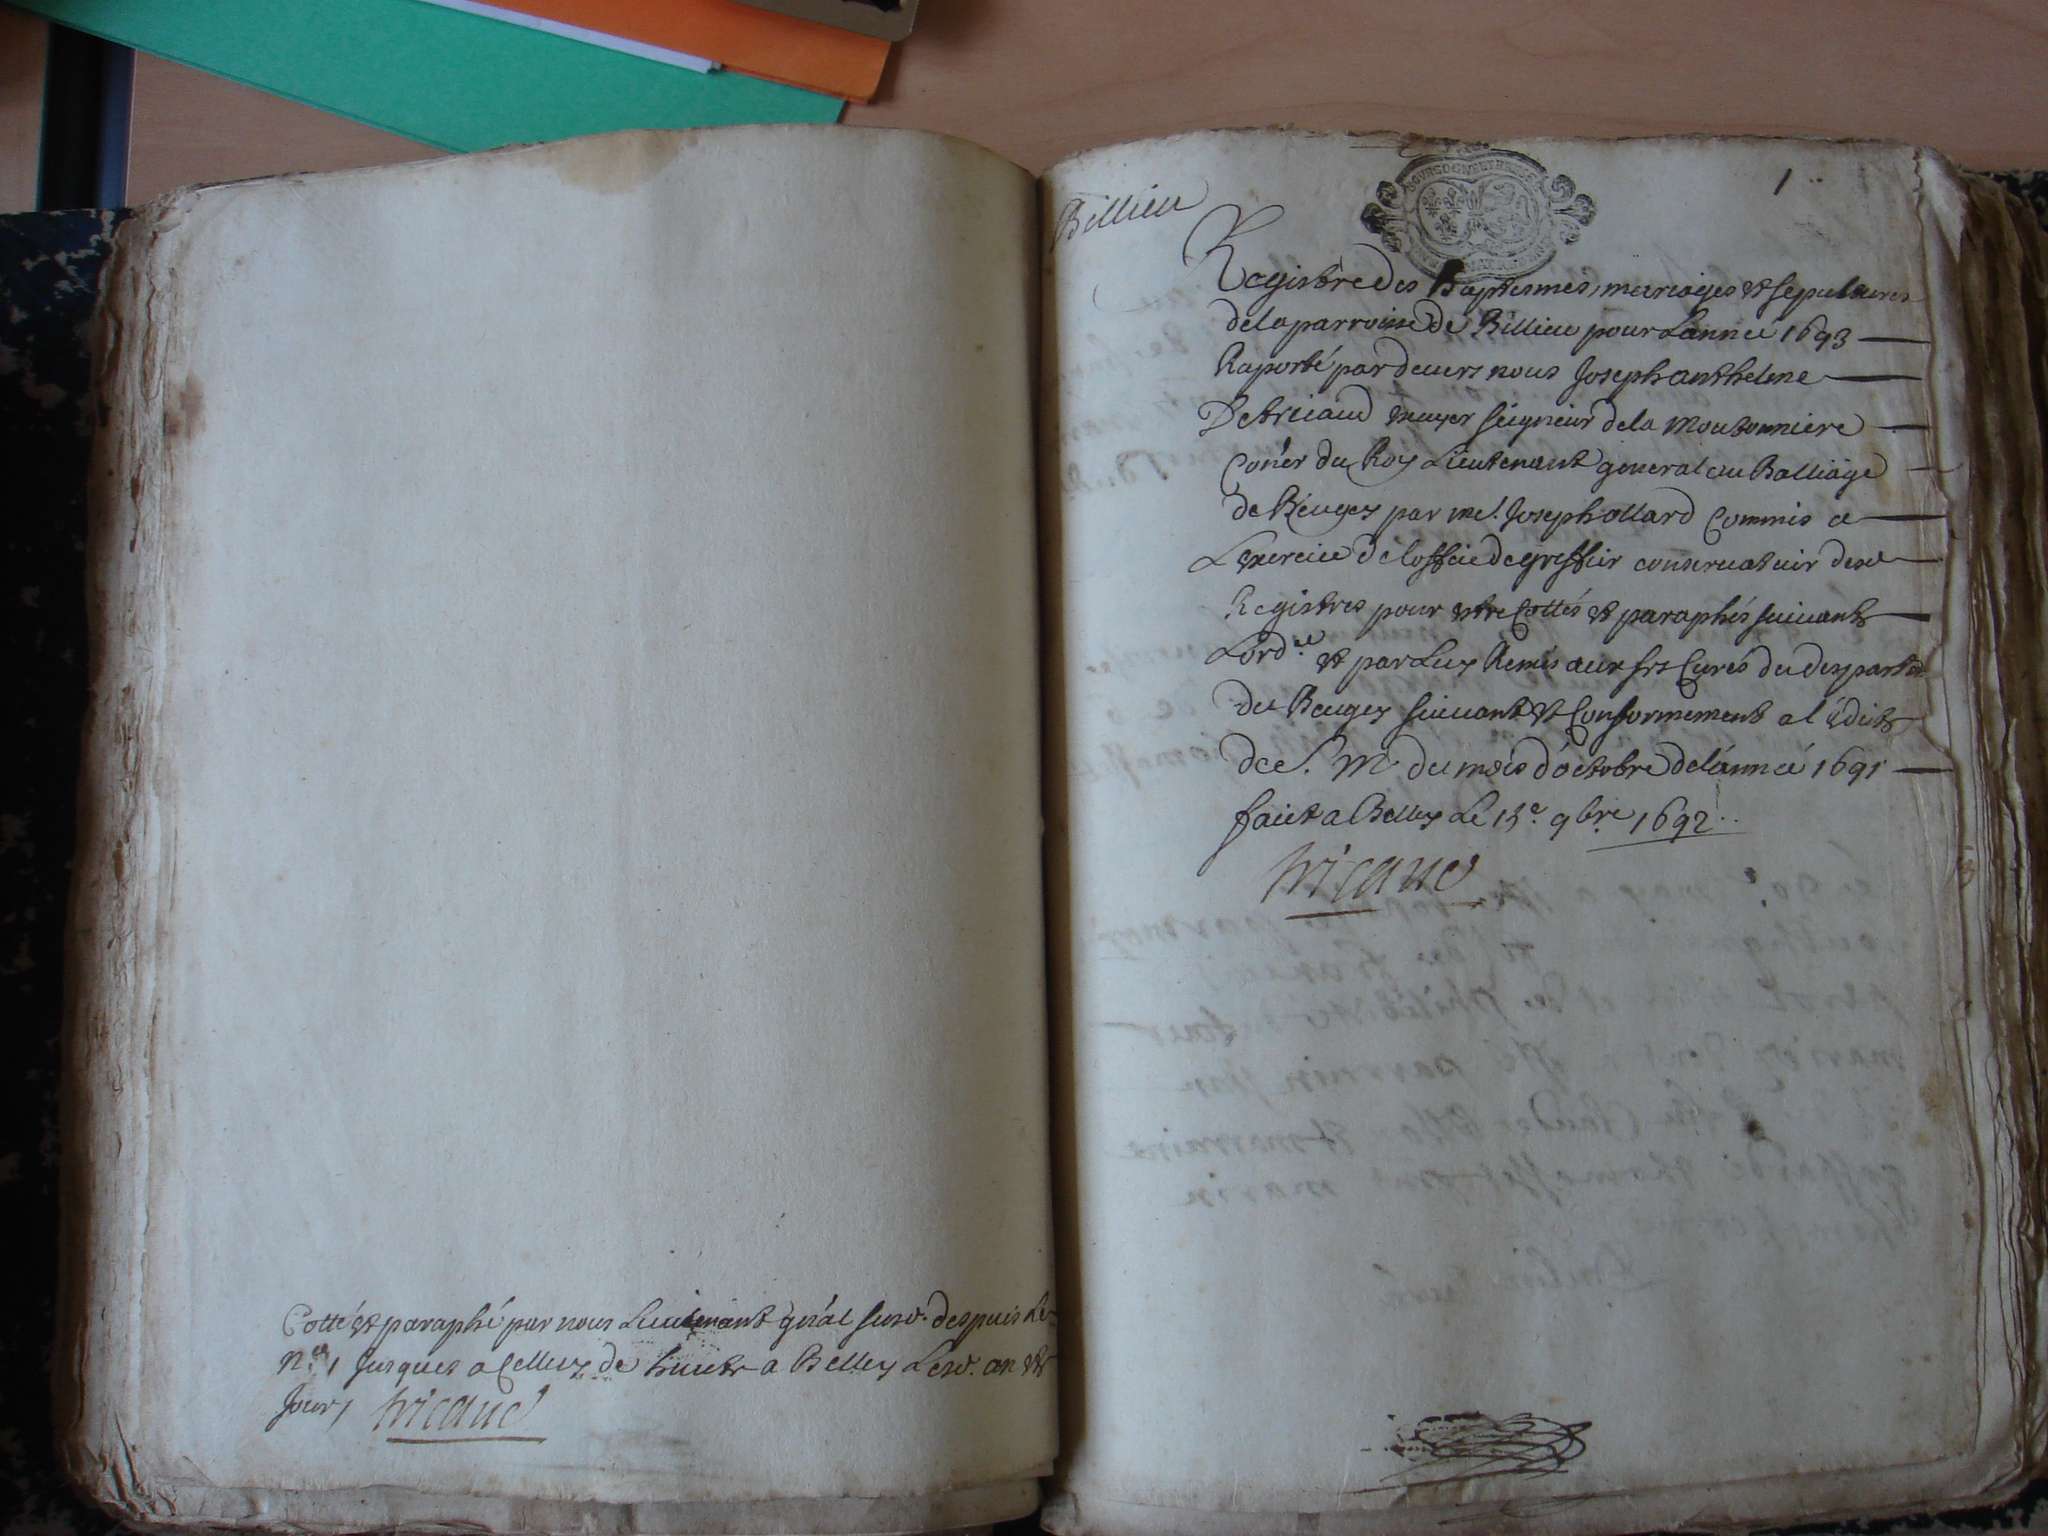 Cotté et paraphé par nous Lieutenant gnãl susd. despuis Le
N.º 1 Jusques a Celluy de huict a Belley Lesd. an et
Jour /
Tricaud
Billieu
1
BOURGOGNE ET BRESSE
Registre des Baptesmes, mariages et sepultures
de la parroisse de Billieu pour Lannee 1693
Raporté pardeuers nous Joseph anthelme
De tricaud mayer seigneur de la Moutonniere
Coner du Roy Lieutenant general au Balliage
de Beugey par me. Joseph ollard Commis a
Lexercice de loffice de greffier conseruateur desd
Registres pour estre Cottés et paraphés suiuant
Lord.ce et par Luy Remis aux srs Curés du despart.t
du Beugey suiuant et Conformement a l'édict
de S. M. du mois d'octobre de lánneé 1691
faict a Belley Le 15.e 9bre 1692
Tricaud